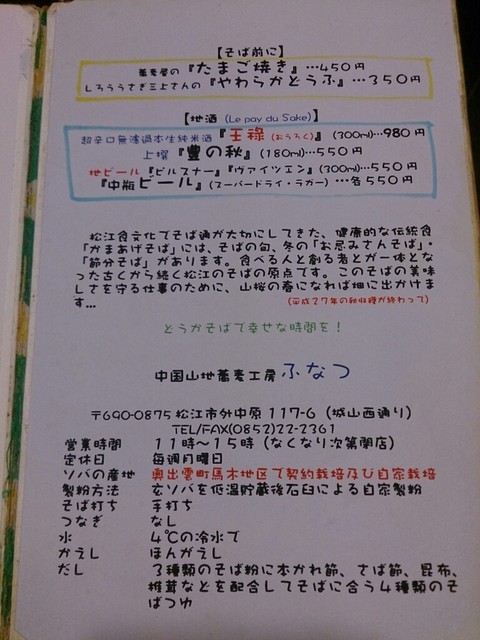 【そば前に】
蕎麦屋の『たまご焼き』…450円
しろううさぎ三上さんの『やわらかどうふ』…350円
【地酒 (Le pay du Sake)】
超辛口無濾過本生純米酒『王祿(おうろく)』(300ml)…980円
上撰『豊の秋』(180ml)…550円
地ビール『ピルスナー』『ヴァイツェン』(300ml)…550円
『中瓶ビール』(スーパードライ・ラガー) …各550円
松江食文化でそば通が大切にしてきた、健康的な伝統食
「かまあげそば」には、そばの旬、冬の「お忌みさんそば」・
「節分そば」があります。食べる人と創る者とが一体とな
った古くから続く松江のそばの原点です。このそばの美味
しさを守る仕事のために、山桜の春になれば畑に出かけま
す… (平成27年の秋収穫が終わって)
どうかそばで幸せな時間を!
中国山地蕎麦工房 ふなつ
〒690-0875 松江市外中原 117-6 (城山西通り)
TEL/FAX(0852)22-2361
営業時間 11時~15時 (なくなり次第閉店)
定休日 毎週月曜日
ソバの産地 奥出雲町馬木地区で契約栽培及び自家栽培
製粉方法 玄ソバを低温貯蔵後石臼による自家製粉
そば打ち 手打ち
つなぎ なし
水 4℃の冷水で
かえし ほんがえし
だし 3種類のそば粉に本かれ節、さば節、昆布、
椎茸などを配合してそばに合う4種類のそ
ばつゆ